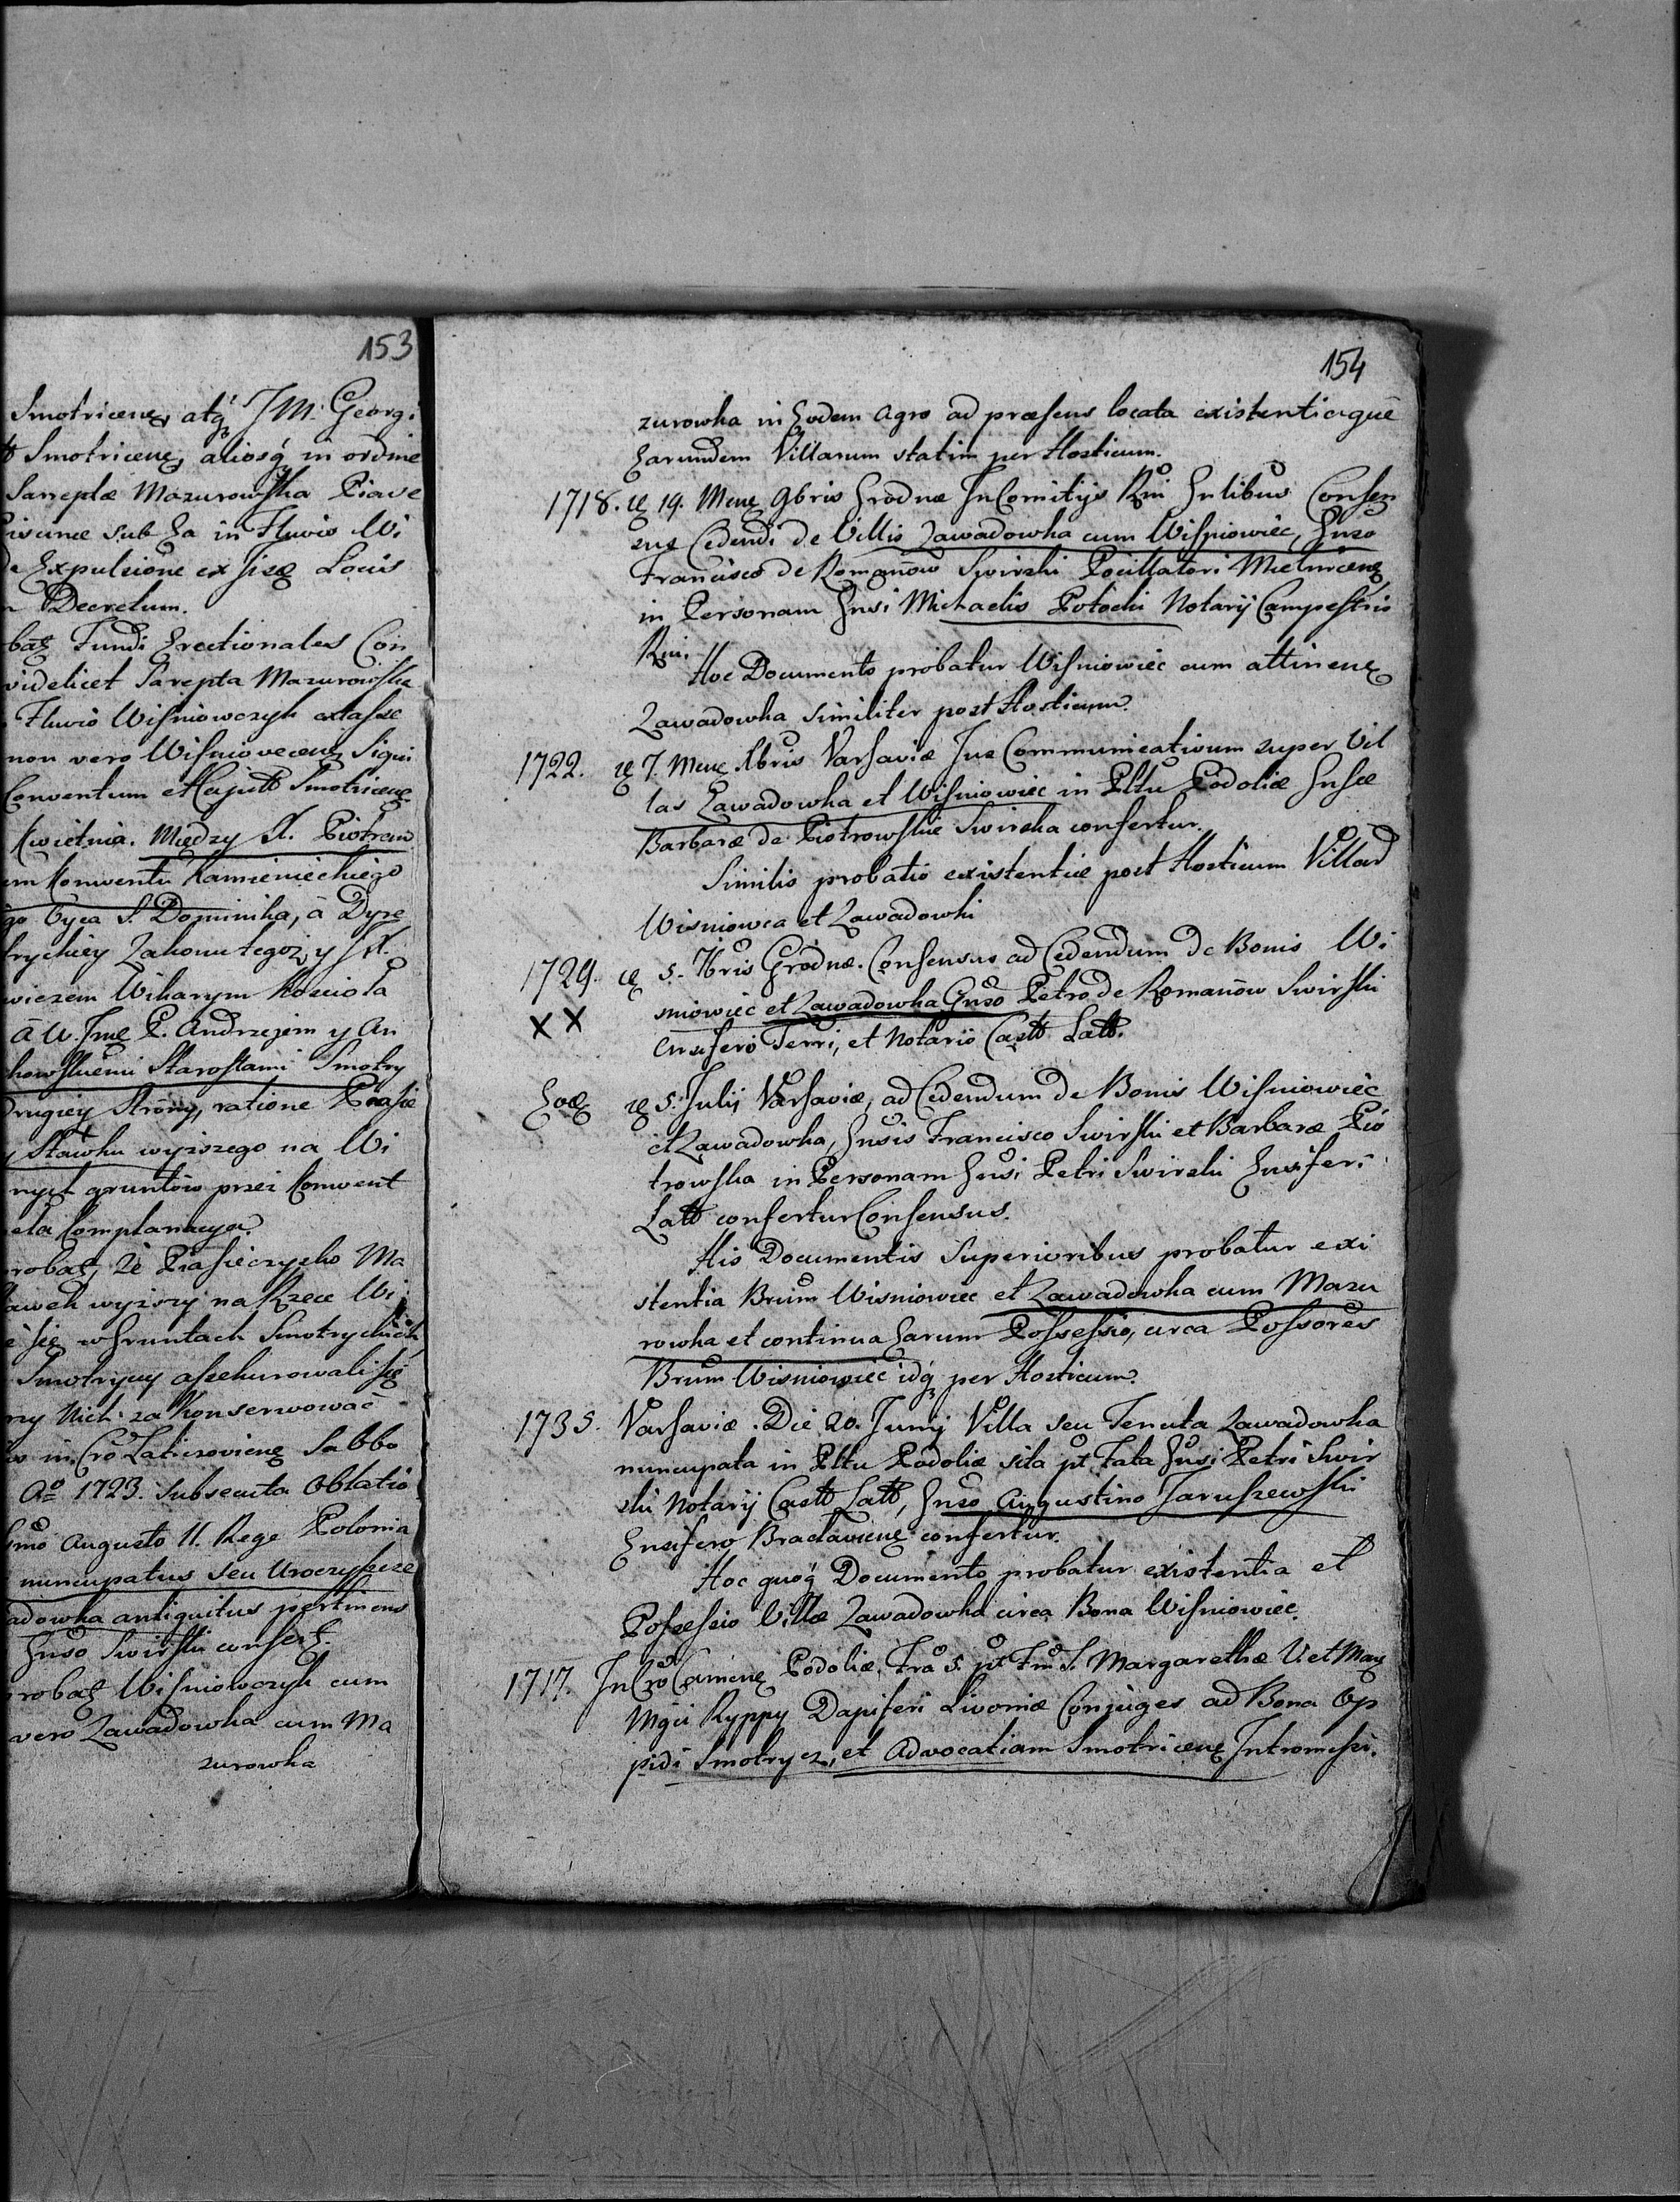 153
Smotricens, atq3 J M. Georgi
Smotricens, aliosq́ in ordine
Sarreptæ Mazurowska Piave
sub Ea in Fluvio Wi
de Expulsione ex Locis
Decretum.
Fundi Erectionales Con
videlicet Sarepta Mazurowska
Fluvio Wiſniowczyk extasse
non vero Wiſniovecens Siqui
Conventum et Smotricens
Kwietnia. Między X. Piotrem
em Konwentu Kamienieckiego
go Oyca S. Dominika, á Dyze
trychiey Zakonu tegoż, y JX.
wiczem Wikarym Kościoła
á W. Jme P. Andrzejem y An
kowskiemi Starostami Smotry
Drugiey Strony, ratione
y Stawku wyższego na Wi
nych gruntów przez Konwent
Complanacya.
że Piasieczysko Ma
tawek wyższy na Rzece Wi
się w Gruntach Smotryckich
Smotryccy assekurowali się
rzy Nich za Konserwować
in Cro Laticzoviens Sabbo
Ao 1723. subsecuta Oblatio
Augusto II. Rege Polonia
nuncupatus seu Uroczysze
adowka antiquitus pertinens
Gnso Swirski confert.
Wiſniowczyk cum
vero Zawadowka cum Ma
zurowka
154
zurowka in Eodem agro ad præsens locata existentiaquē
Earundem Villarum statim per Hosticum.
1718. 19. Mens 9bris Grodnæ In Comitijs Rni Gnlibus Consen
sus Cedendi de Villis Zawadowka cum Wiſniowiec, Gnso
Francisco de Romanów Swirski Pocillatori Mielnicens
in Personam Gnsi Michaelis Potocki Notarij Campestris
Rni.
Hoc Documento probatur Wiſniowiec cum attinens
Zawadowka similiter post Hosticum.
1722. 7. Mens Xbris Varsaviæ Jus Communicativum super Vil
las Zawadowka et Wiſniowiec in Pltu Podoliæ Gnsæ
Barbaræ de Piotrowskie Swirska confertur.
Similis probatio existentiæ post Hosticum Villar
Wisniowca et Zawadowki
1729. 5. 7bris Grodnæ. Consensus ad Cedendum de Bonis Wi
XX
sniowiec et Zawadowka Gnso Petro de Romanów Swirski
Ensifero Terri, et Notario Castr Latt.
Eod 5. Julij Varsaviæ, ad Cedendum de Bonis Wiſniowiec
et Zawadowka, Gnsis Francisco Swirski et Barbaræ Pio
trowska in Personam Gnsi Petri Swirski Ensiferi
Latt confertur Consensus.
His Documentis Superioribus probatur exi
stentia Brum Wisniowiec et Zawadowka cum Mazu
rowka et continua Earum Possessio, circa Possores
Brum Wisniowiec idq3 per Hosticum.
1735. Varsaviæ. Die 20. Junij Villa seu Tenuta Zawadowka
nuncupata in Pltu Podoliæ sita pt Fata Gnsi Petri Swir
ski Notarij Castr Latt, Gnso Augustino Jaruszewski
Ensifero Braclaviens confertur.
Hoc quoq́ Documento probatur existentia et
Possessio Villæ Zawadowka circa Bona Wiſniowiec.
1717. In Cro Camens Podoliæ. Fra 5. pt Fm S. Margarethæ V et Mars
Mgci Ryppy Dapiferi Livoniæ Conjuges ad Bona Op
pidi Smotrycz, et Advocatiam Smotricens Intromissi.